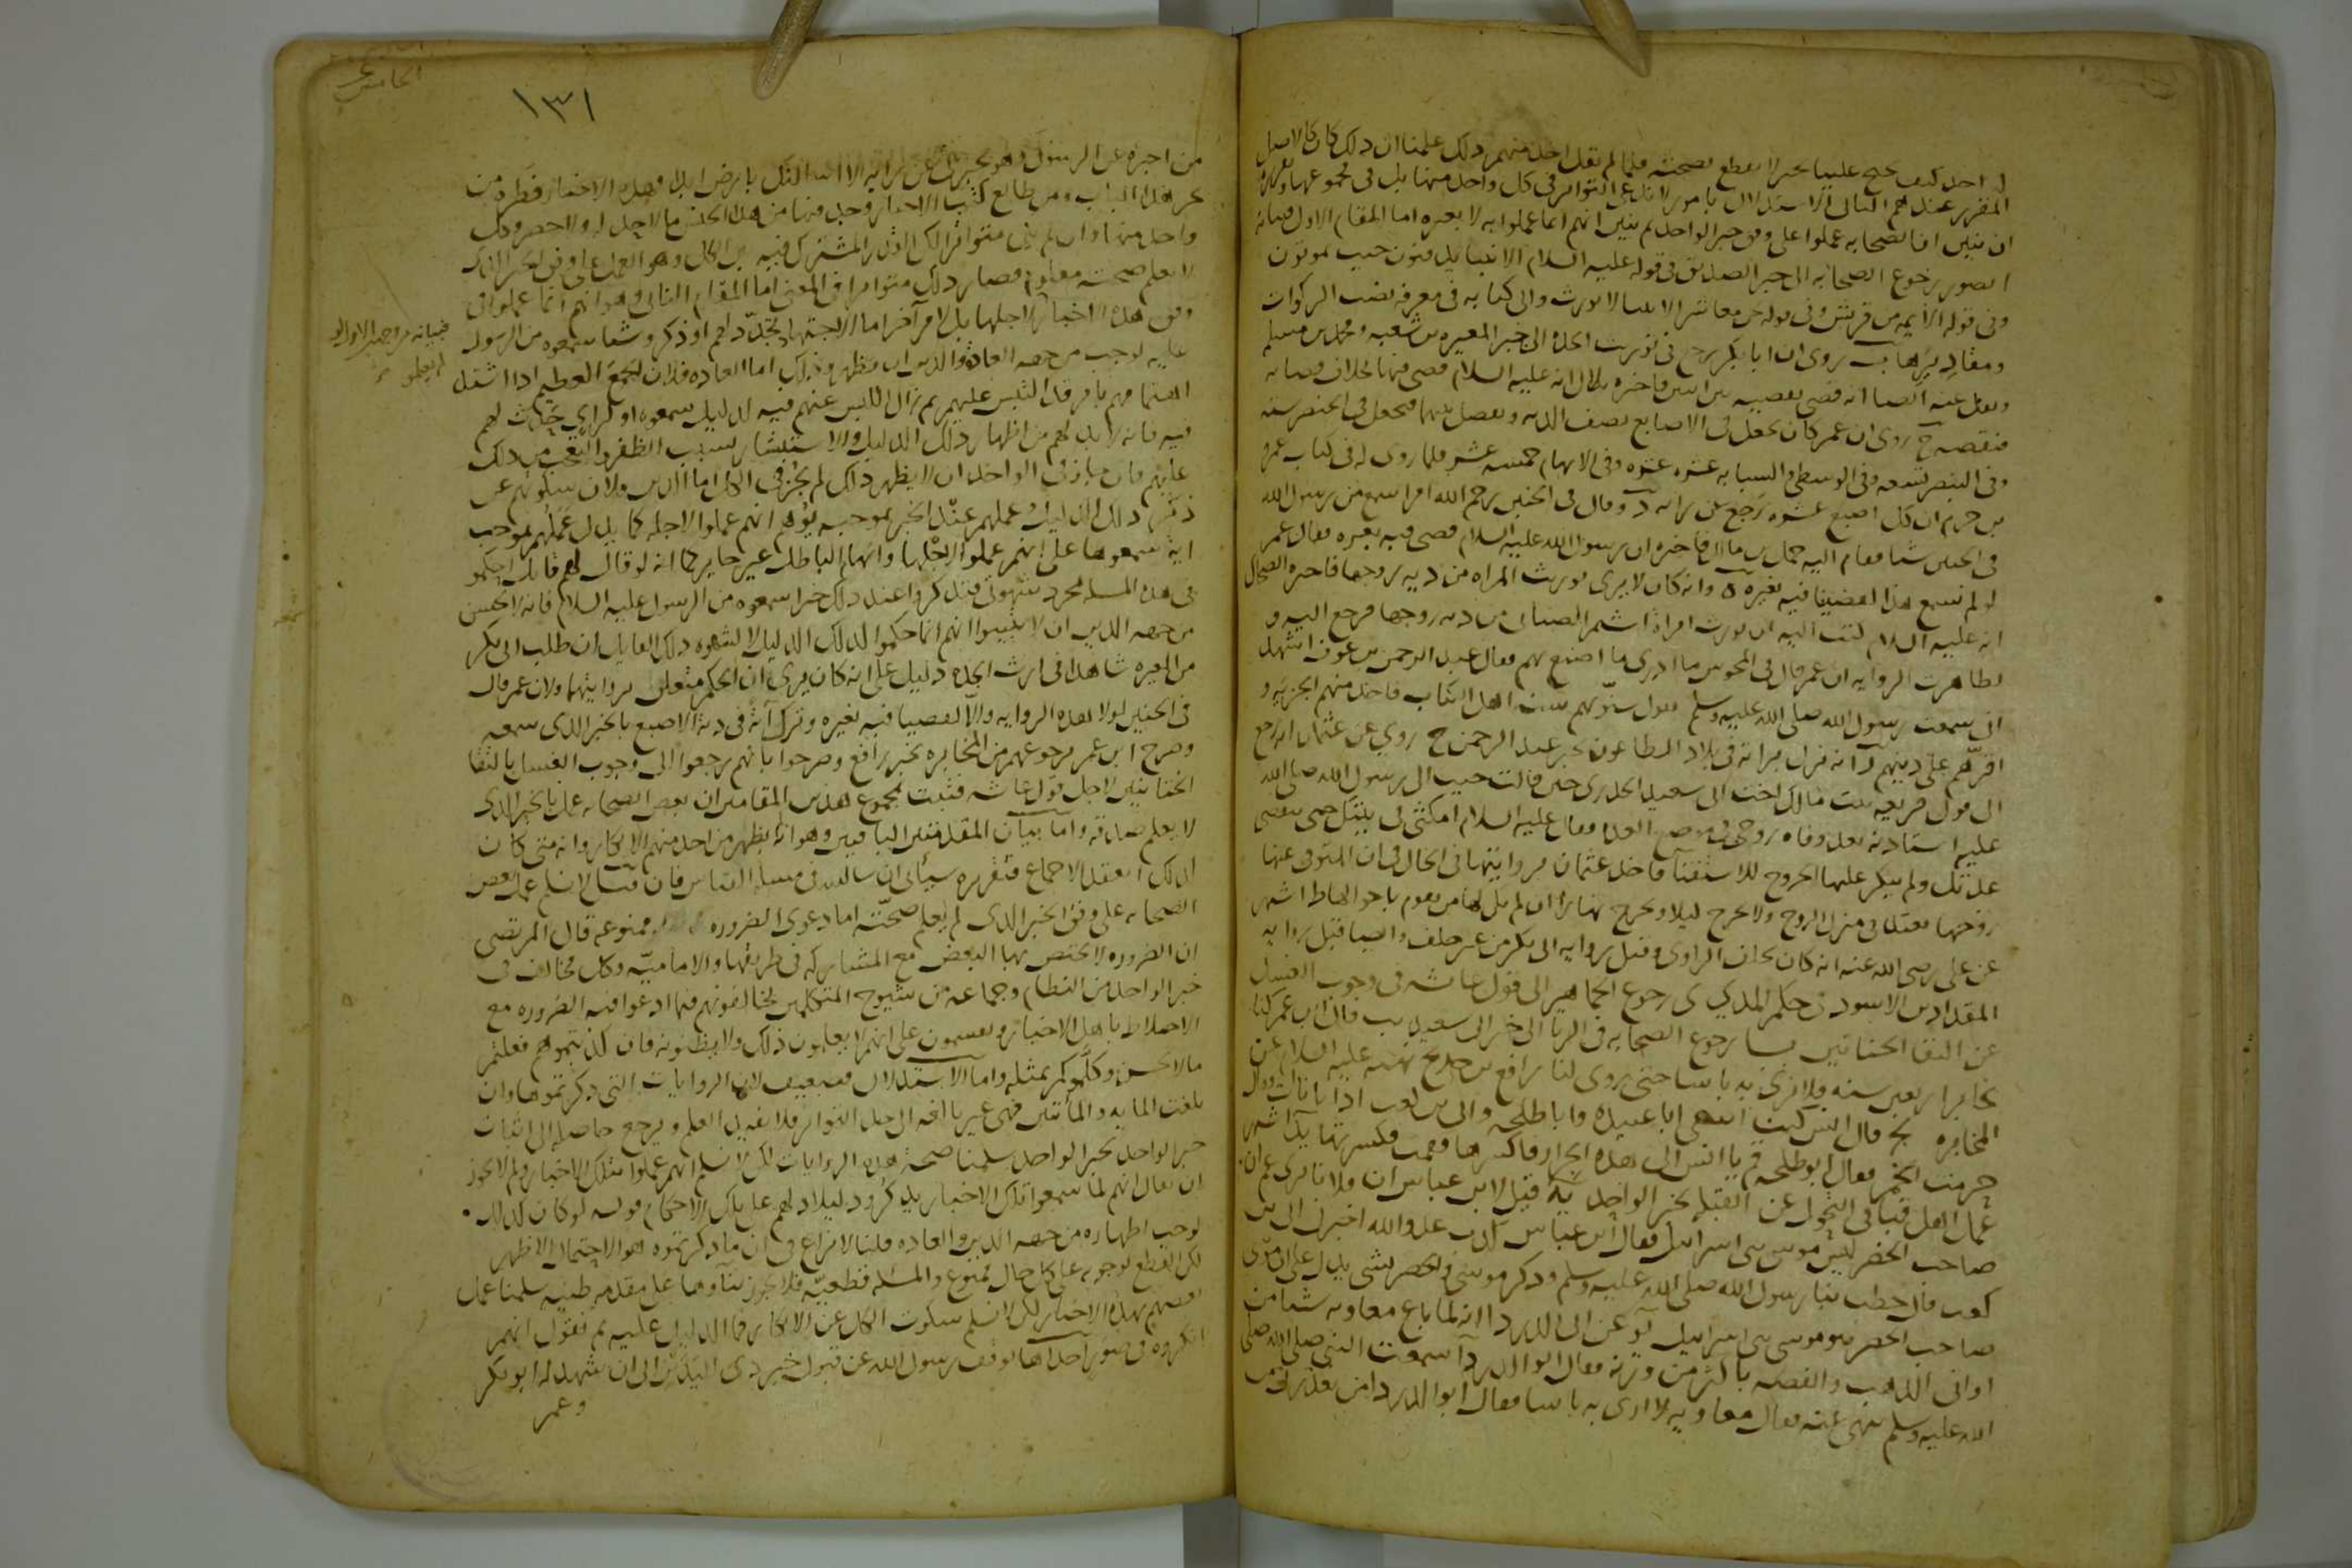 له احد كيف تحتج علينا بخبر لا نقطع بصحته فلما لم يقل احد منهم ذلك علمنا ان ذلك كان كالاصل
المقرر عندهم الثانى الاستدلال بامور لا ندعى التواتر فى كل واحد منها بل فى مجموعها وتقريره
ان نبين ان الصحابه عملوا على وفق خبر الواحد ثم نبين انهم انما عملوا به لا بغيره اما المقام الاول فبيانه
رجوع الصحابه الى خبر الصديق فى قوله عليه السلام الانبيا يدفنون حيث يموتون
وفى قوله الايمه من قريش وفى قوله نحن معاشر الانبيا لا نورث والى كتابه فى معرفه نصب الزكوات
ومقاديرها ب روى ان ابا بكر رجع فى توريث الجده الى خبر المغيره بن شعبه ومحمد بن مسلمه
ونقل عنه ايضا انه قضى بقضيه بين اثنين فاخبره بلال انه عليه السلام قضى فيها بخلاف قضايه
فنقضه ج روى ان عمر كان يجعل فى الاصابع نصف الديه ويفصل بينها فيجعل فى الخنصر سته
وفى البنصر تسعه وفى الوسطى والسبابه عشره عشره وفى الابهام خمسه عشر فلما روى له فى كتاب عمرو
بن حزم ان فى كل اصبع عشره رجع عن رايه د وقال فى الجنين رحم الله امرا سمع من رسول الله
فى الجنين شيا فقام اليه حمل بن مالك فاخبره ان رسول الله عليه السلام قضى فيه بغره فقال عمر
لو لم نسمع هذا لقضينا فيه بغيره ه وانه كان لا يرى توريث المراه من ديه زوجها فاخبره الضحاك
انه عليه السلام كتب اليه ان يورث امراة اشيم الضبابى من ديه زوجها فرجع اليه و
تظاهرت الروايه ان عمر قال فى المجوس ما ادرى ما اصنع بهم فقال عبد الرحمن بن عوف اشهد
انى سمعت رسول الله صلى الله عليه وسلم يقول سنوا بهم سنة اهل الكتاب فاخذ منهم الجزيه و
اقرهم على دينهم ز انه ترك رايه فى بلاد الطاعون بخبر عبد الرحمن ح روى عن عثمان انه رجع
الى قول فريعه بنت مالك اخت ابى سعيد الخدرى حين قالت جيت الى رسول الله صلى الله
عليه استاذنه بعد وفاه زوجى فى موضع العده فقال عليه السلام امكثى فى بيتك حتى تنقضى
عدتك ولم ينكر عليها الخروج للاستفتا فاخذ عثمان بروايتها فى الحال فى ان المتوفى عنها
زوجها تعتد فى منزل الزوج ولا تخرج ليلا وتخرج نهارا ان لم يكن لها من يقوم باحوالها ط اشتهر
عن على رضى الله عنه انه كان يحلف الراوى وقبل روايه ابى بكر من غير حلف وايضا قبل روايه
المقداد بن الاسود فى حكم المذى ى رجوع الجماهير الى قول عائشه فى وجوب الغسل
عن التقا الختانين يا رجوع الصحابه فى الربا الى خبر ابى سعيد يب قال ابن عمر كنا
نخابر اربعين سنه ولا نرى به باسا حتى روى لنا رافع بن خديج نهيه عليه السلام عن
المخابره يج قال انس كنت اسقى ابا عبيده وابا طلحه وابى بن كعب اذ اتانا آت فقال
حرمت الخمر فقال ابو طلحه قم يا انس الى هذه الجرار فاكسرها فقمت فكسرتها يد اشتهر
عمل اهل قبا فى التحول عن القبله بخبر الواحد يه قيل لابن عباس ان فلانا يزعم ان
صاحب الخضر ليس موسى بنى اسرائيل فقال ابن عباس كذب عدو الله اخبرنى ابى بن
كعب قال خطب بنا رسول الله صلى الله عليه وسلم وذكر موسى والخضر بشى يدل على ان موسى
صاحب الخضر هو موسى بنى اسرائيل يو عن ابى الدرداء انه لما باع معاويه شيا من
اوانى الذهب والفضه باكثر من وزنه فقال ابو الدرداء سمعت النبى صلى الله
الله عليه وسلم نهى عنه فقال معاويه لا ارى به باسا فقال ابو الدرداء من يعذرنى من
الخامس عشر
١٣١
من اخبره عن الرسول وهو يخبرنى عن رايه لا اساكنك بارض ابدا فهذه الاخبار قطرة من
بحر هذا الباب ومن طالع كتب الاخبار وجد فيها من هذا الجنس ما لا حد له ولا حصر وكل
واحد منها وان لم يكن متواترا لكن القدر المشترك فيه بين الكل وهو العمل على وفق الخبر الذى
لا يعلم صحته معلوم فصار ذلك متواترا فى المعنى اما المقام الثانى وهو انهم انما عملوا فى
وفق هذه الاخبار لاجلها بل لامر آخر اما لاجتهاد تجدد لهم او ذكروا شيا سمعوه من الرسول
فبيانه من وجهين الاول لو لم يعملوا
عليه لوجب من جهه العاده والدين ان يظهر ذلك اما العاده فلان الجمع العظيم اذا اشتد
اهتمامهم بامر قد التبس عليهم ثم زال اللبس عنهم فيه لدليل سمعوه او لراى حدث لهم
فيه فانه لا بد لهم من اظهار ذلك الدليل والاستبشار بسبب الظفر والتعجب من ذلك
عليهم فان جاز فى الواحد ان لا يظهر ذلك لم يجز فى الكل اما الدين فلان سكوتهم عن
ذكر ذلك الدليل وعملهم عند الخبر بموجبه يوهم انهم عملوا لاجله كما يدل عملهم بموجب
اية سمعوها على انهم عملوا لاجلها وايهام الباطل غير جايز كما انه لو قال لهم قايل احكموا
فى هذه المسله بمجرد شهوتى فتذكروا عند ذلك خبرا سمعوه من الرسول عليه السلام فانه لا يحسن
من جهه الدين ان لا يبينوا انهم انما حكموا لذلك الدليل لا لشهوه ذلك القايل ان طلب ابى بكر
من المغيره شاهدا فى ارث الجده دليل على انه كان يرى ان الحكم متعلق بروايتهما ولان عمر قال
فى الجنين لولا هذه الروايه والا لقضينا فيه بغيره وترك رأيه فى دية الاصبع بالخبر الذى سمعه
وصرح ابن عمر برجوعهم عن المخابره بخبر رافع وصرحوا بانهم رجعوا الى وجوب الغسل بالتقا
الختانين لاجل قول عائشه فثبت بمجموع هذين المقامين ان بعض الصحابه عمل بالخبر الذى
لا يعلم صدقه واما بيان المقدمتين الباقيين وهو انه لم يظهر من احد منهم الانكار وانه متى كان
كذلك انعقد الاجماع فتقريره سيأتى ان شا الله فى مسله القياس فان قيل لا نسلم عمل بعض
الصحابه على وفق الخبر الذى لم يعلم صحته اما دعوى الضروره ممنوعه قال المرتضى
ان الضروره لا يختص بها البعض مع المشاركه فى طريقها والاماميه وكل مخالف فى
خبر الواحد من النظام وجماعه من شيوخ المتكلمين يخالفونهم فيما ادعوا فيه الضروره مع
الاختلاط باهل الاخبار ويقسمون على انهم لا يعلمون ذلك ولا يظنونه فان كذبتموهم فعلتم
ما لا يحسن وكلموكم بمثله واما الاستدلال فضعيف لان الروايات التى ذكرتموها وان
بلغت المايه والمائتين فهى غير بالغه الى حد التواتر فلا تفيد العلم ويرجع حاصله الى اثبات
خبر الواحد بخبر الواحد سلمنا صحة هذه الروايات لكن لا نسلم انهم عملوا بتلك الاخبار ولم لا يجوز
ان يقال انهم لما سمعوا تلك الاخبار تذكروا دليلا دلهم على تلك الاحكام قوله لو كان كذلك
لوجب اظهاره من جهه الدين والعاده قلنا لا نزاع فى ان ما ذكرتموه هو الاحتمال الاظهر
لكن القطع بوجوبه على كل حال ممنوع والمسله قطعيه فلا يجوز بناؤها على مقدمه ظنيه سلمنا عمل
بعضهم بهذه الاخبار لكن لا نسلم سكوت الكل عن الانكار فما الدليل عليه ثم نقول انهم
انكروه فى صور احداها توقف رسول الله عن قبول خبر ذى اليدين الى ان شهد له ابو بكر
وعمر